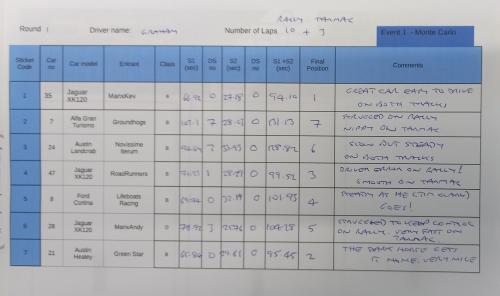 RALLY TARMAC
Round 1 Driver name: GRAHAM Number of Laps 10 + 3 Event 1 - Monte Carlo
Sticker Code Car no Car model Entrant Class S1 (sec) DS no S2 (sec) DS no S1 +S2 (sec) Final Position Comments
1 35 Jaguar XK120 ManxKev 66.92 0 27.18 0 94.10 1 GREAT CAR EASY TO DRIVE
ON BOTH TRACKS
2 7 Alfa Gran Turismo Groundhogs 7 0 131.13 7 STRUGGLED ON RALLY
NIPPY ON TARMAC
3 24 Austin Landcrab Novissime Iterum 0 6 SLOW BUT STEADY
ON BOTH TRACKS
4 47 Jaguar XK120 RoadRunners 1 0 99.52 3 DRIVER ERROR ON RALLY!
SMOOTH ON TARMAC
5 8 Ford Cortina Lifeboats Racing 0 0 101.93 4 STEADY AS HE
GOES!
6 28 Jaguar XK120 ManxAndy 78.92 3 0 5 STRUGGLED TO KEEP CONTROL
ON RALLY. VERY FAST ON
TARMAC
7 21 Austin Healey Green Star 0 29.61 0 95.45 2 THE DARK HORSE GETS
NAME. VERY NICE